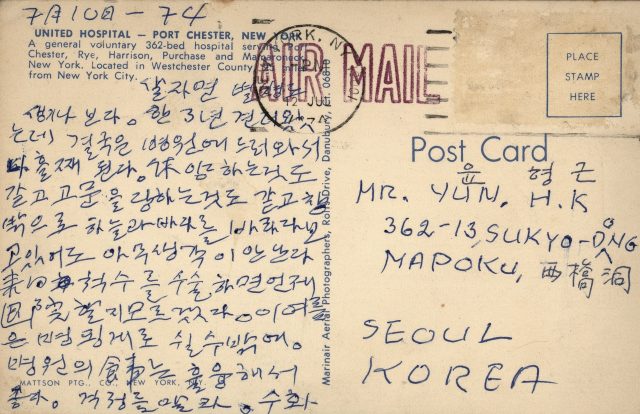 7月10日-74
UNITED HOSPITAL — PORT CHESTER, NEW YORK
A general voluntary 362-bed hospital serving
Chester, Rye, Harrison, Purchase and Mamaroneck,
New York. Located in Westchester County
from New York City.
살자면 별일 다
생기나 보다. 한 3년 견디
는데 결국은 병원에 누워서
흘째 된다. 休양하는 것도
같고 고문을 당하는 것도 같고 창
밖으로 하늘과 바다를 바라다보
고 있어도 아무 생각이 안난다
척수를 수술하면 언제
할지 모르겠다. 이 여름
은 별 수 없게 쉴 수밖에.
병원의 食事는 훌륭해서
좋다. 걱정들 말라. 수화
MATTSON PTG., CO., NEW YORK, NY.
Marinair Aerial Photographers, Drive, Danbury, Ct. 06810
YORK, NY
PM
JUL
AIR MAIL
PLACE
STAMP
HERE
Post Card
윤 형근
MR. YUN, H.K
362-13, SUKYO-DONG
MAPOKU, 西橋洞
SEOUL
KOREA